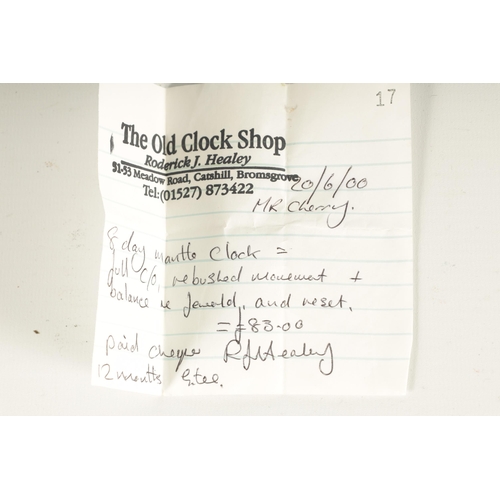 17
The Old Clock Shop
Roderick J. Healey
51-53 Meadow Road, Catshill, Bromsgrove,
Tel:(01527) 873422
20/6/00
MR Cherry.
8 day mantle Clock =
full C/O, rebushed movement +
balance re Jeweld, and reset.
= £83.00
paid cheque RJHealey
12 months Gtee.